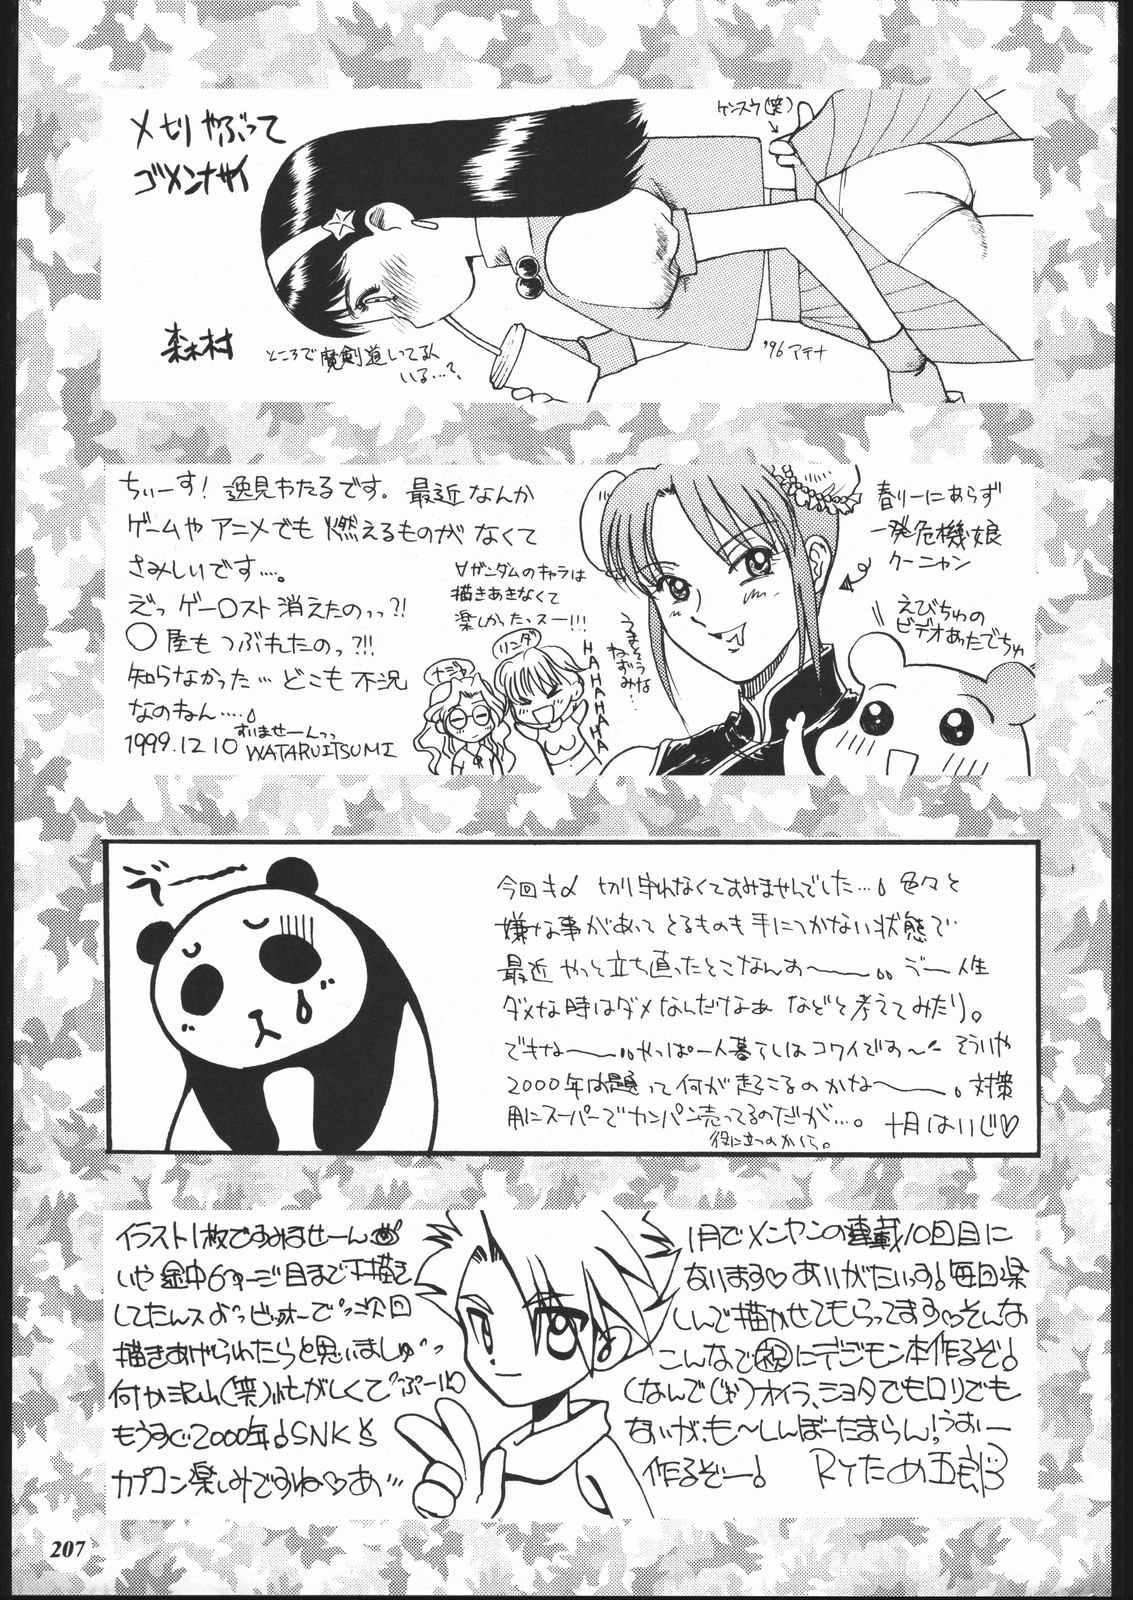 メ切りやぶって
ゴメンナサイ
森木村
ところで魔剣道しいてる人
いる…?
ケンスウ(笑)
'96 アテナ
ちぃーす! 逸見わたるです。最近なんか
ゲームや アニメでも 燃えるものが なくて
さみしいです…。
えっ ゲーロスト 消えたのっっ?!
○屋も つぶれたの っ?!!
知らなかった… どこも 不況
なのねん…。
すいませーんっっ
1999.12.10 WATARU ITSUMI
∀ガンダムのキャラは
描きあきなくて
楽しかったっスー!!!
ナジマ
リンダ
HAHAHAHAHA
うまそうな
ねずみ…!
春リーにあらず
一発危機娘
クーニャン
えびちゅの
ビデオあったでちゅ
うーー
今回も〆切り守れなくてすみませんでした…。色々と
嫌な事があって とるものも手につかない状態で…
最近 やっと立ち直ったとこなんす〜〜。。うー人生
ダメな時はダメなんだけなぁ などと考えてみたり。
できな〜〜。。やっぱ一人暮らしはコワイです〜 そういや
2000年問題って何が起こるのかな〜〜。対策
用にスーパーでカンパン売ってるのだが…。十月はいじ♡
役に立つのかして。
イラスト1枚ですみませーん
いや 金中6ページ目まで下描き
してたんスよっ ビッチーで 次回
描きあげられたらと思いましゅっ
何か沢山(笑)忙がしくて ぷーl
もうすぐ2000年。SNKと
カプコン楽しみですね♡あ…
1月でメンヤンの連載10回目に
なります♡ありがたいっす!毎回楽
しんで描かせてもらってます♡そんな
こんなで㊗にデジモン本作るぞ!
(なんでじゃ)オイラ、ショタでもロリでも
ないが、も〜しんぼーたまらん!うおぃー
作るぞー! RYため五郎
207